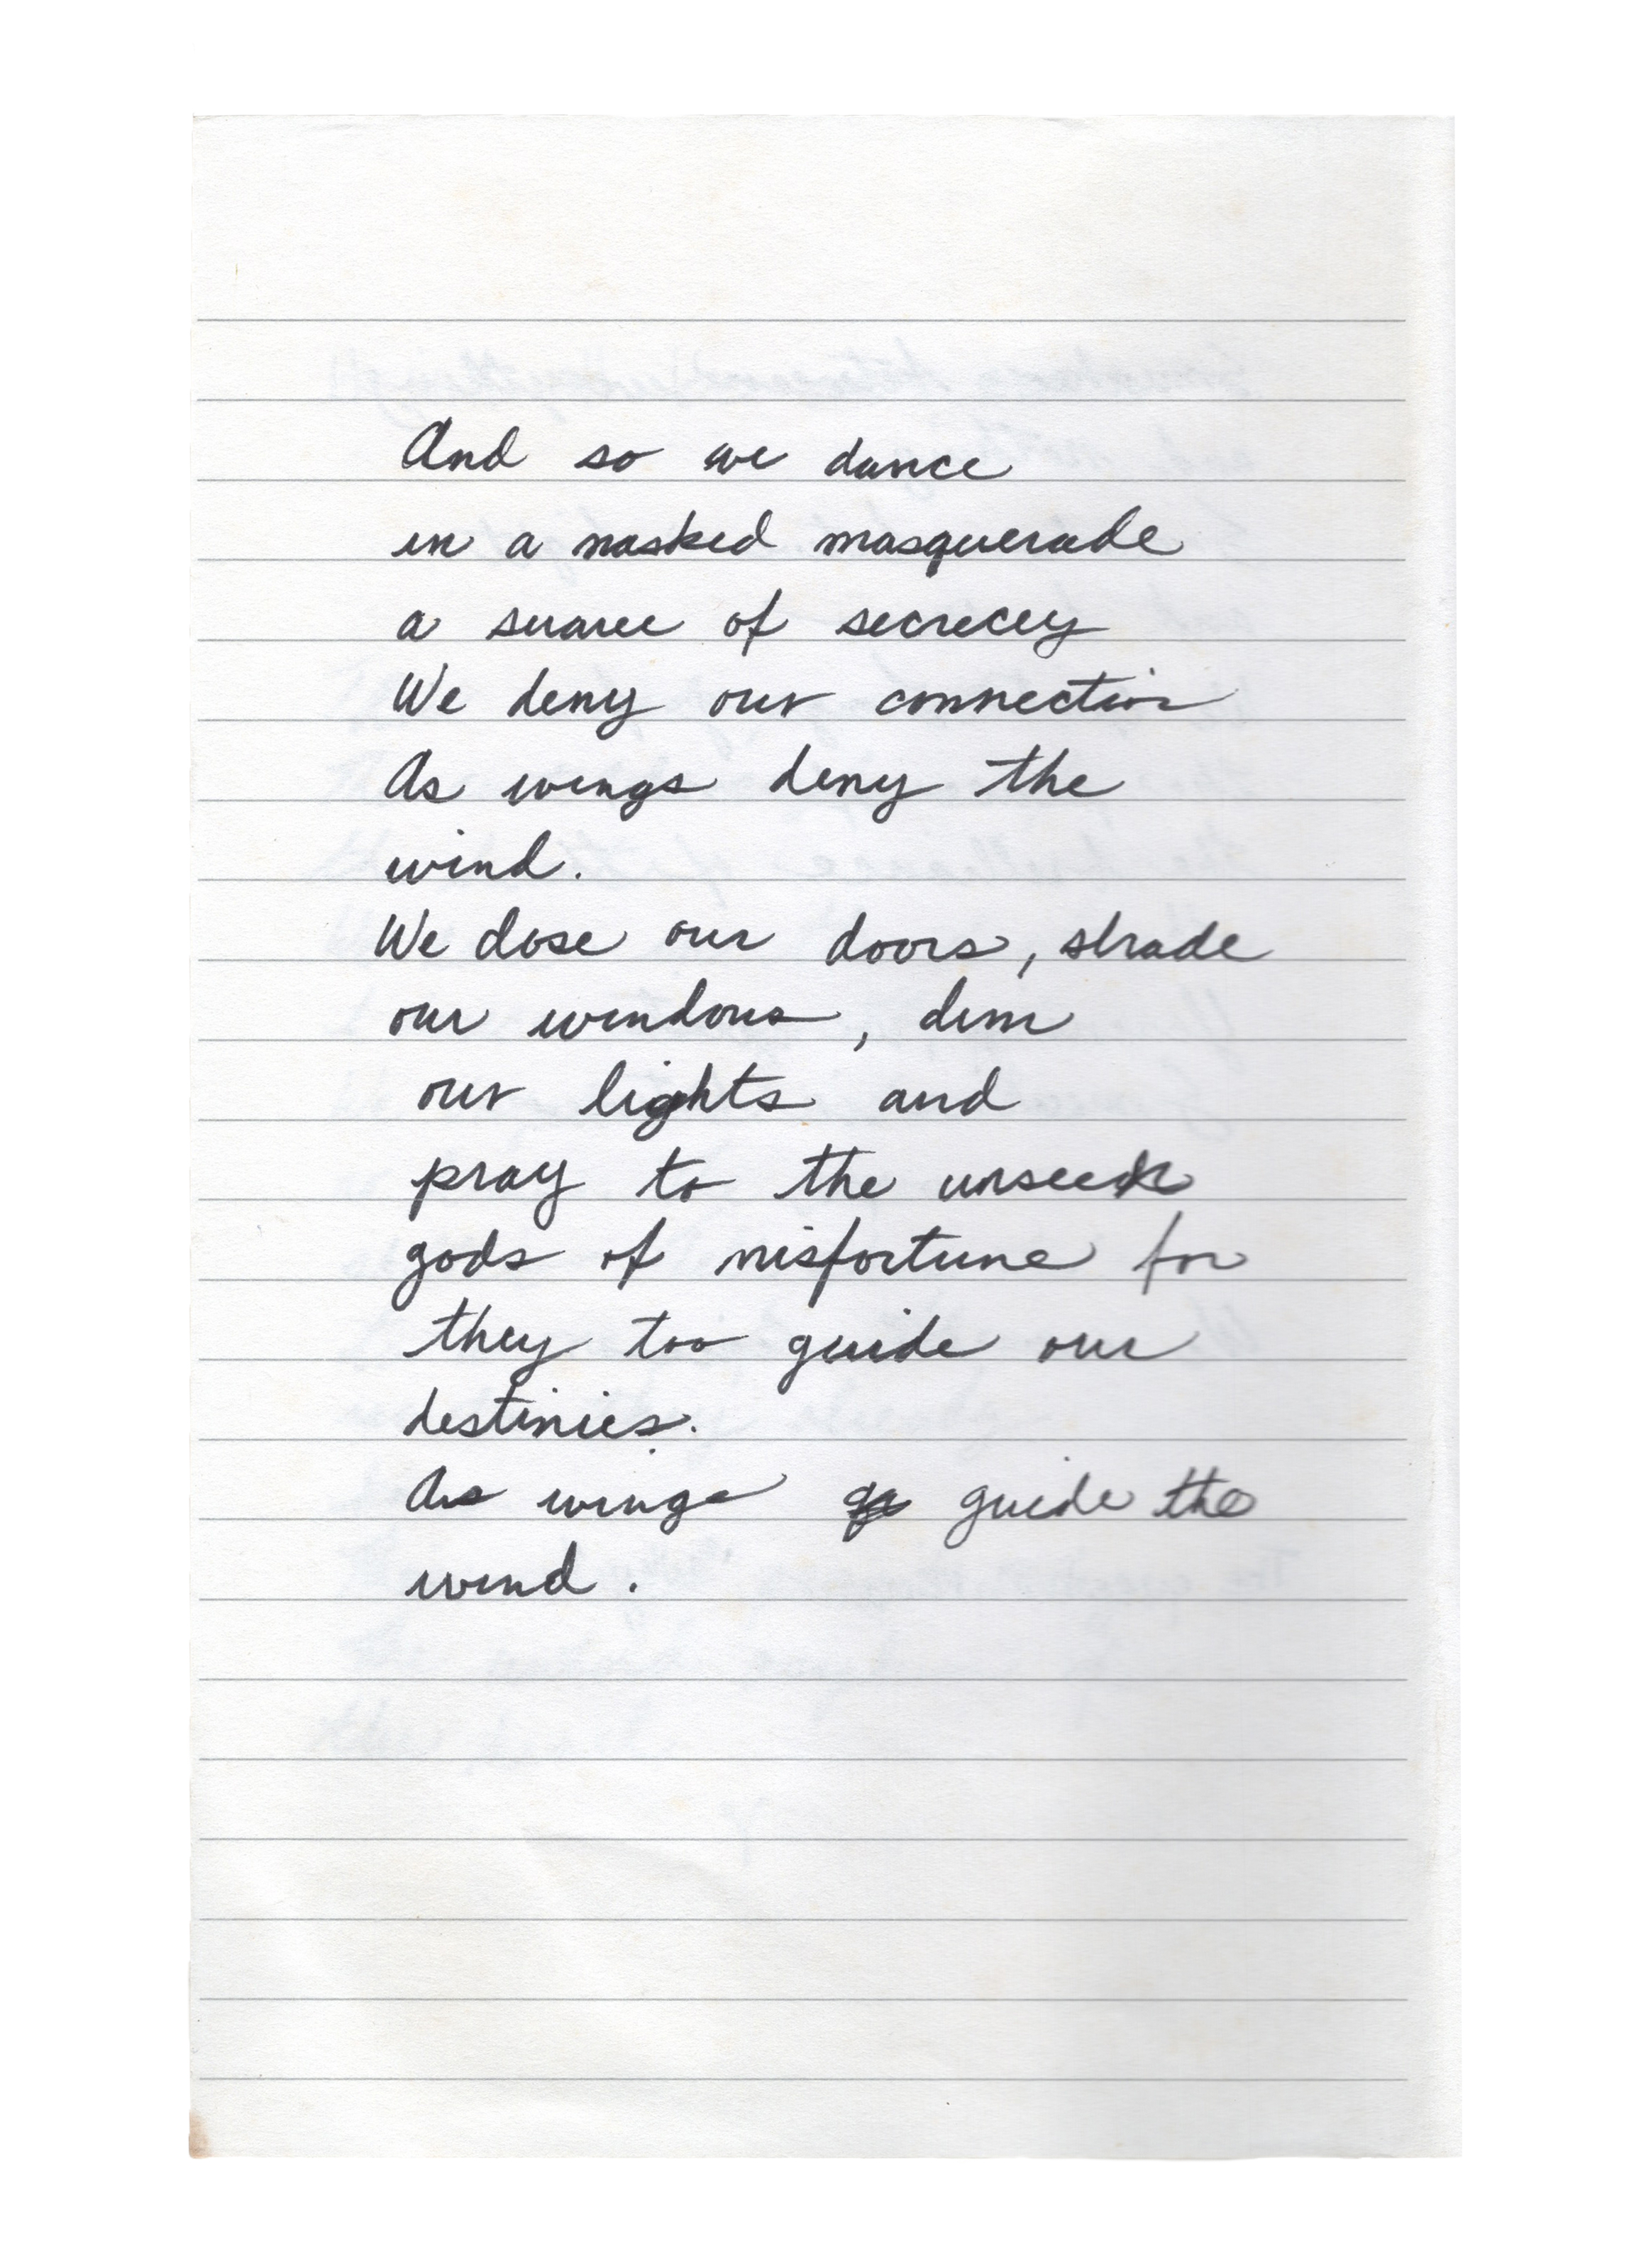 And so we dance
in a masked masquerade
a suaree of secrecey
We deny our connection
As wings deny the
wind.
We close our doors, shade
our windows, dim
our lights and
pray to the unseen
gods of misfortune for
they too guide our
destinies.
As wings guide the
wind.